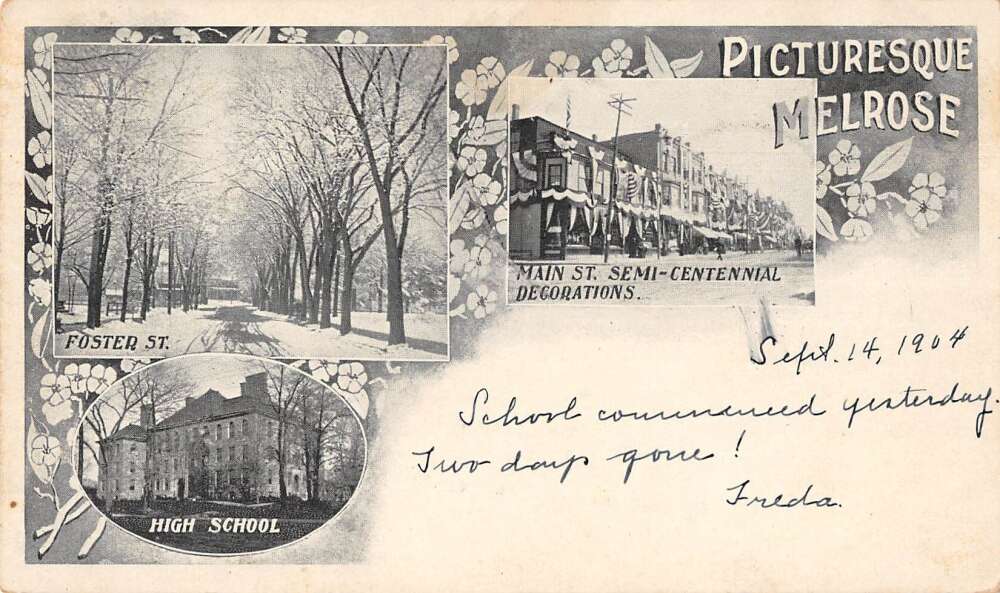 PICTURESQUE
MELROSE
FOSTER ST.
MAIN ST. SEMI-CENTENNIAL
DECORATIONS.
HIGH SCHOOL
Sept. 14, 1904
School commenced yesterday.
Two days gone!
Freda.